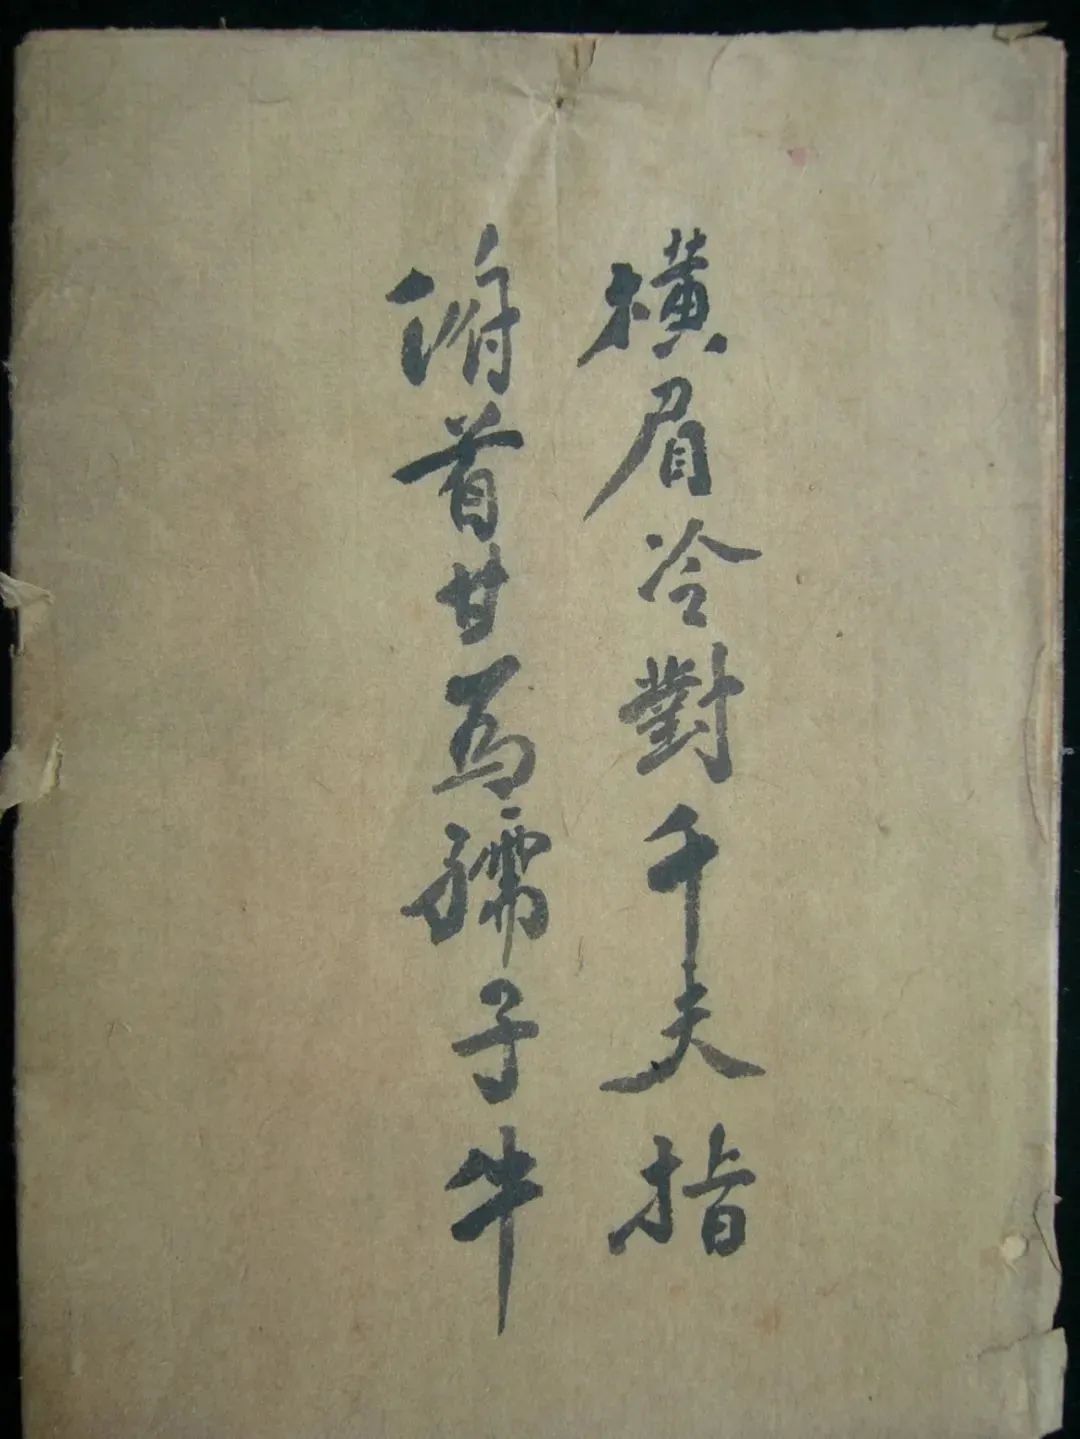 橫眉冷對千夫指
俯首甘為孺子牛